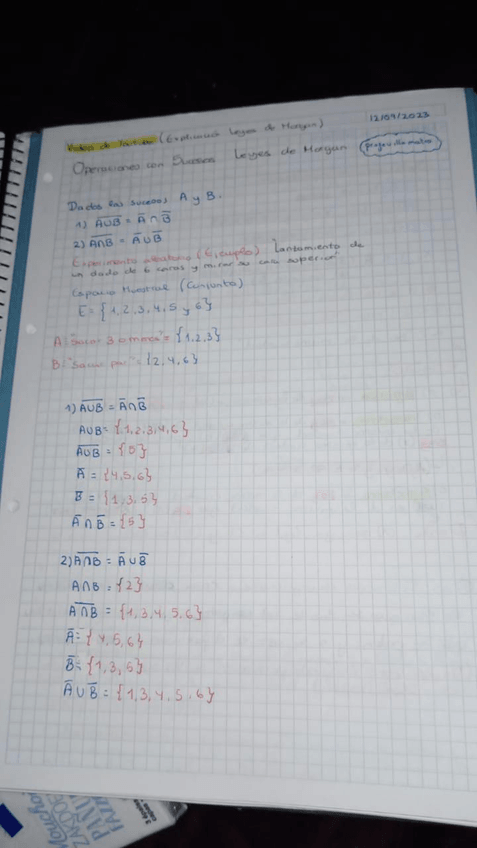 12/09/2023
Videos de (Explicación Leyes de Morgan)
Operaciones con Sucesos Leyes de Morgan
Dados los sucesos A y B.
1) A̅∪̅B̅ = A̅ ∩ B̅
2) A̅∩̅B̅ = A̅ ∪ B̅
Experimento aleatorio (Ejemplo) Lanzamiento de
un dado de 6 caras y mirar su cara superior
Espacio Muestral (Conjunto)
E = {1, 2, 3, 4, 5 y 6}
A: "Sacar 3 o menos" = {1,2,3}
B: "Sacar par" = {2,4,6}
1) A̅∪̅B̅ = A̅∩B̅
A∪B = {1,2,3,4,6}
A̅∪̅B̅ = {5}
A̅ = {4,5,6}
B̅ = {1,3,5}
A̅ ∩ B̅ = {5}
2) A̅∩̅B̅ = A̅ ∪ B̅
A∩B = {2}
A̅∩̅B̅ = {1,3,4,5,6}
A̅ = {4,5,6}
B̅ = {1,3,5}
A̅ ∪ B̅ = {1,3,4,5,6}